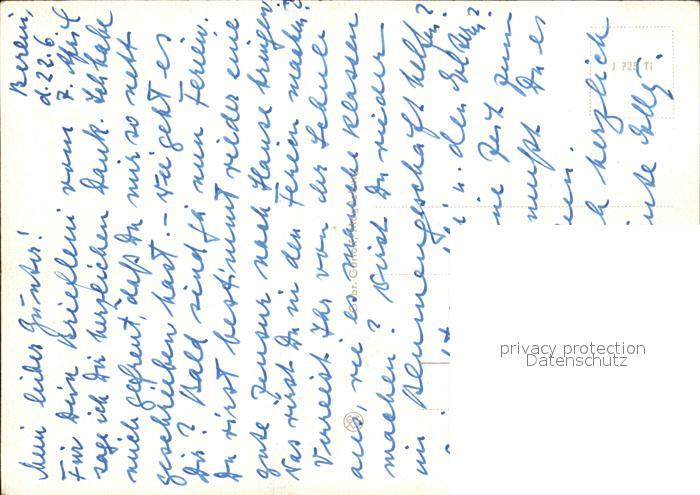 Berlin,
d. 22.6.
Mein lieber Günter!
Für Dein Brieflein vom 7. April
sage ich Dir herzlichen Dank. Ich habe
mich gefreut, daß Du mir so nett
geschrieben hast. – Wie geht es
Dir? Bald sind ja nun Ferien.
Du wirst bestimmt wieder eine
gute Zensur nach Hause bringen,
Was wirst Du in den Ferien machen?
Verreist Ihr von der Schule
aus, wie es manche Klassen
machen? Wirst Du wieder
im Blumengeschäft helfen?
u. den
Zeit zum
mußt Du es
herzlich
J 725 Ti
privacy protection
Datenschutz